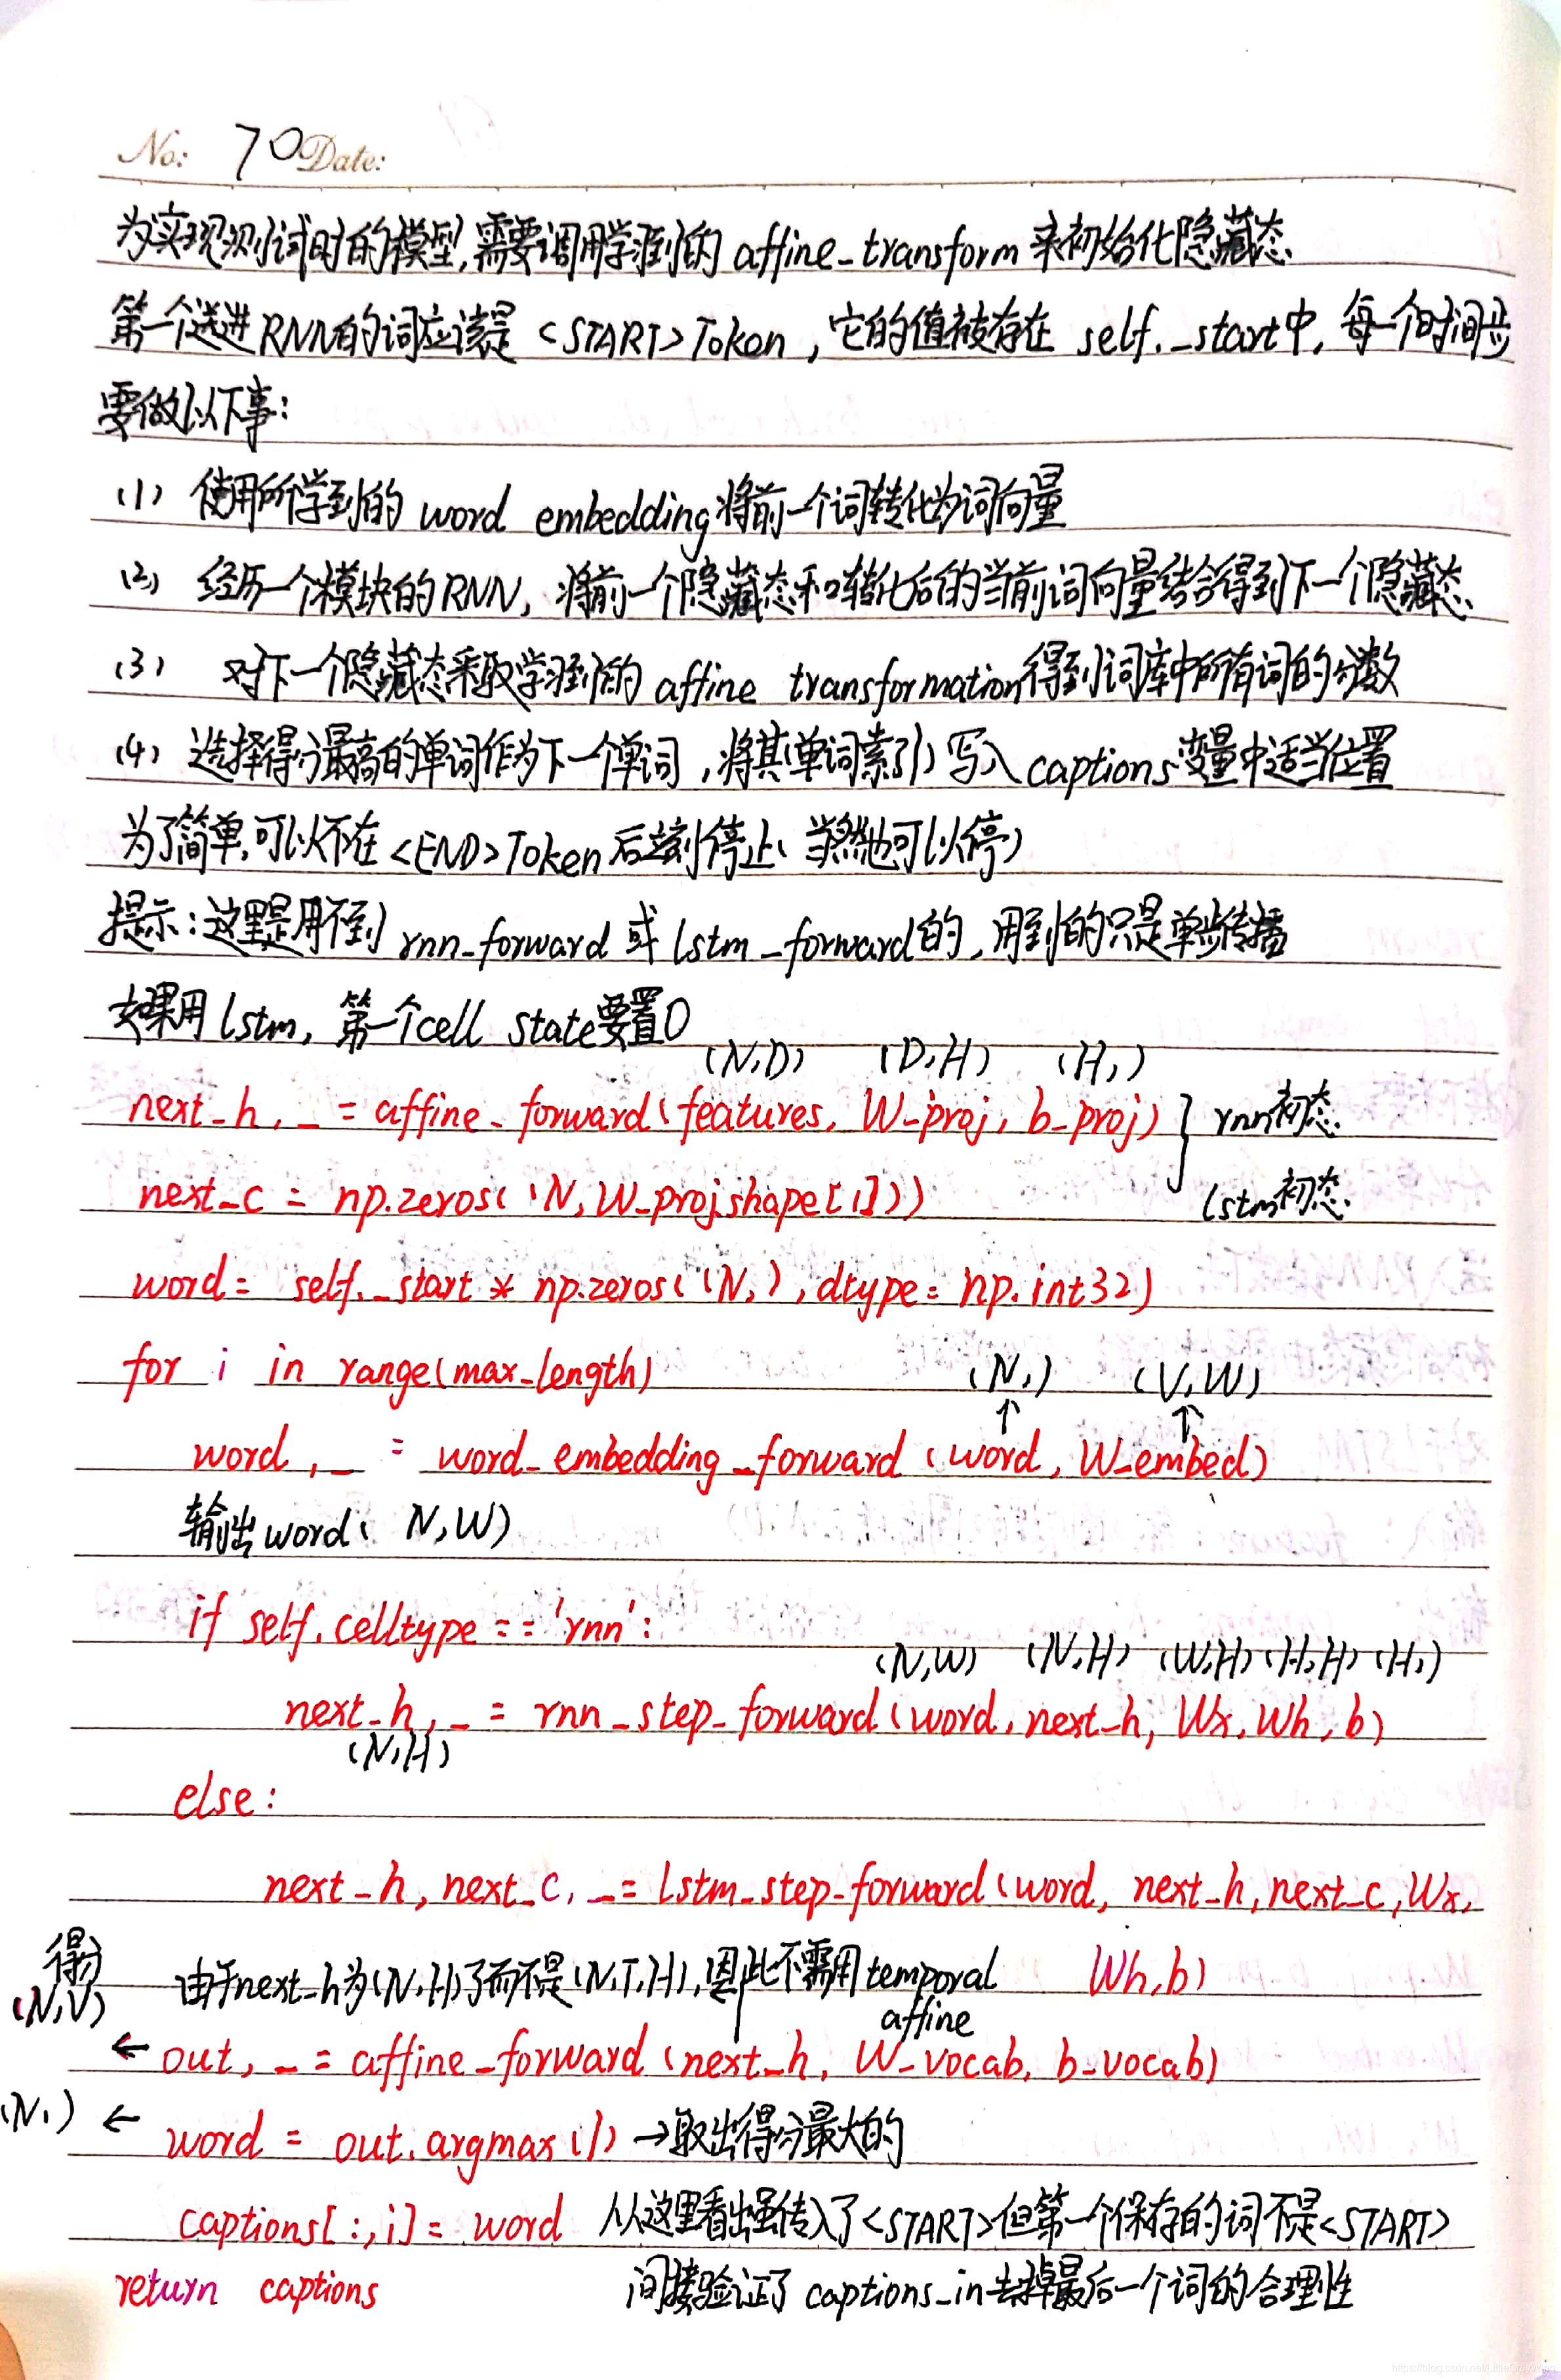 No: 70 Date:
为实现测试时的模型,需要调用学到的 affine_transform 来初始化隐藏态.
第一个送进RNN的词应该是 <START> Token , 它的值被存在 self._start中, 每一个时间步
要做以下事:
(1) 使用所学到的 word embedding将前一个词转化为词向量
(2) 经历一个模块的RNN, 将前一个隐藏态和转化后的当前词向量结合得到下一个隐藏态.
(3) 对下一个隐藏态采取学到的 affine transformation得到词库中所有词的分数
(4) 选择得分最高的单词作为下一个单词 ,将其(单词索引) 写入captions变量中适当位置
为了简单,可以不在<END>Token后立刻停止( 当然也可以停)
提示:这里是用不到 rnn_forward 或 lstm_forward的 ,用到的只是单步传播
如果用 lstm, 第一个cell state要置0
(N,D) (D,H) (H,)
next_h, _ = affine_forward(features, W_proj, b_proj) } rnn初态.
next_c = np.zeros((N, W_proj.shape[1])) lstm初态.
word = self._start * np.zeros((N,), dtype = np.int32)
for i in range(max_length) (N,) (V,W)
↑ ↑
word, _ = word_embedding_forward (word, W_embed)
输出word( N,W)
if self.celltype == 'rnn':
(N,W) (N,H) (W,H) (H,H) (H,)
next_h, _ = rnn_step_forward(word, next_h, Wx, Wh, b)
(N,H)
else:
next_h, next_c, _ = lstm_step_forward(word, next_h, next_c, Wx,
得分 由于next_h为(N,H)了而不是(N,T,H),因此不需用temporal Wh,b)
(N,V) affine
← out, _ = affine_forward (next_h, W_vocab, b_vocab)
(N,) ← word = out.argmax(1) →取出得分最大的
captions[:,i] = word 从这里看出虽传入了<START>但第一个保存的词不是<START>
return captions 间接验证了 captions_in去掉最后一个词的合理性